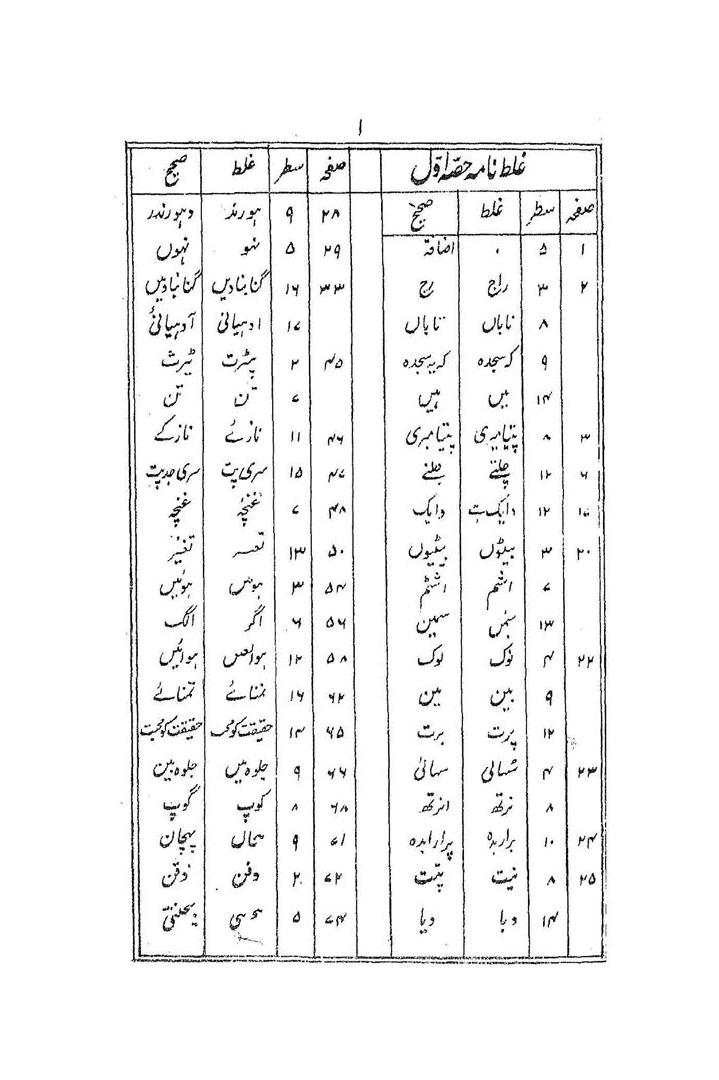 ۱
غلط نامہ حصہ اوّل
صفحہ سطر غلط صحیح
۱ ۵ ۰ اضافہ
۲ ۳ راج رج
۸ ناباں تاباں
۹ کہ سجدہ کہ یہ سجدہ
۱۴ یں ہیں
۳ ۸ پتیاپیری پتیامبری
۶ ۱۲ چلتے جلنے
۱۷ ۱۲ دایک ہے دایک
۲۰ ۳ بیٹوں بیٹیوں
۷ اشم اشٹم
۱۳ سمین
۲۲ ۴ نوک لوک
۹ بین مین
۱۲ پرت برت
۲۳ ۴ شہائی سہائی
۸ نرتھ انرتھ
۲۴ ۱۰ براربدہ پرارابدہ
۲۵ ۸ نیت پتت
۱۴ دبا دیا
صفحہ سطر غلط صحیح
۲۸ ۹ ہورند وہورندر
۲۹ ۵ نہو نہوں
۳۳ ۱۶ گنابنادیں گنانبادیں
۱۷ ادہیائی آدہیائی
۴۵ ۲ پترت ٹیرث
۷ تن تن
۴۶ ۱۱ نازئے نازکے
۴۷ ۱۵ سری پت سری جدپت
۴۸ ۷ غنچۂ غنچہ
۵۰ ۱۳ تغیّر
۵۴ ۳ ہوئیں
۵۶ ۶ اگر الگ
۵۸ ۱۲ ہوائیں
۶۲ ۱۶ نمنائے تمنائے
۶۵ ۱۴ حقیقت کو مح حقیقت کو محبت
۶۶ ۹ جلوہ میں جلوہ بین
۶۸ ۸ کوپ گوپ
۷۱ ۹ پہچان
۷۲ ۲ دفن ذقن
۷۴ ۵